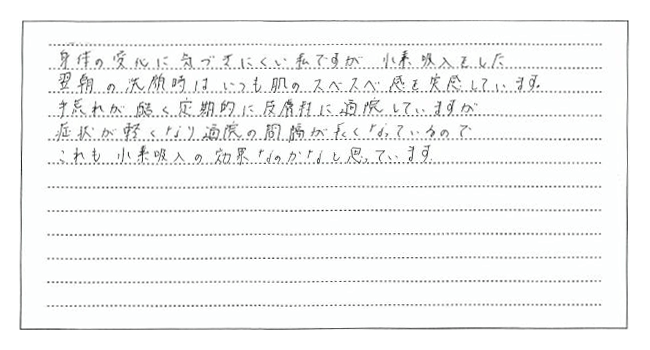 身体の変化に気づきにくい私ですが 水素吸入をした
翌朝の洗顔時はいつも肌のスベスベ感を実感しています。
手荒れが酷く定期的に皮膚科に通院していますが
症状が軽くなり通院の間隔が長くなっているので
これも水素吸入の効果なのかなと思っています。